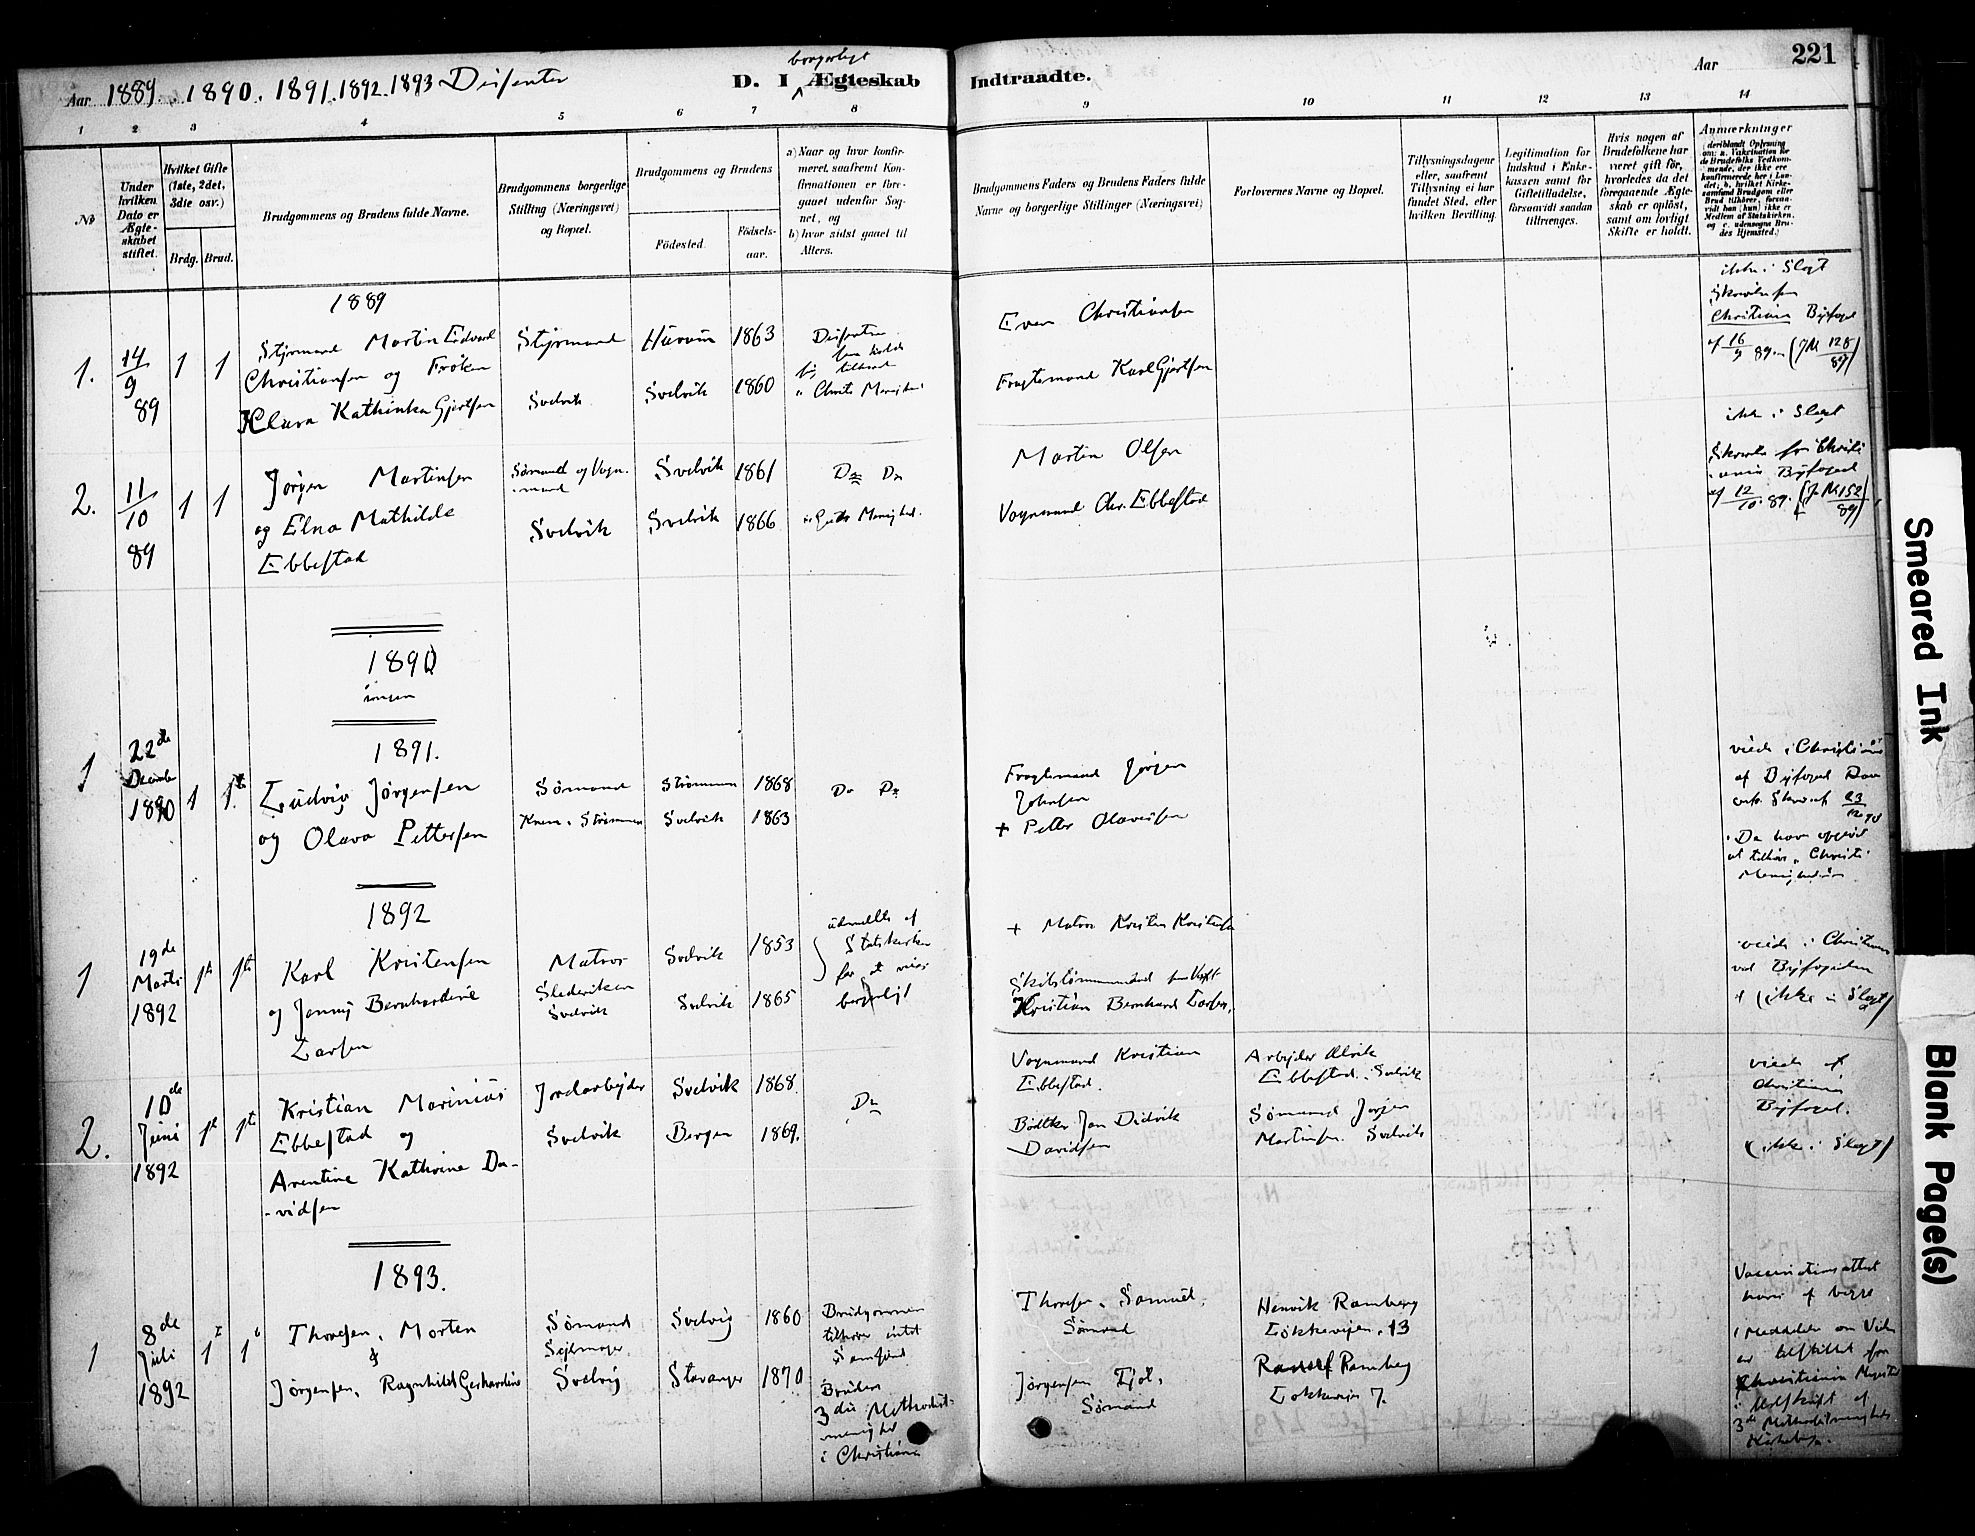 Aar 1889. 1890. 1891. 1892. 1893 Disenter
D. I borgerligt Ægteskab Indtraadte.
Aar 221
1 2 3 4 5 6 7 8 9 10 11 12 13 14
No
Under hvilken Dato er Ægteskabet stiftet.
Hvilket Gifte (1ste, 2det, 3die osv.)
Brdg. Brud.
Brudgommens og Brudens fulde Navne.
Brudgommens borgerlige Stilling (Næringsvei) og Bopæl.
Brudgommens og Brudens
Fødested.
Fødselsaar.
a) Naar og hvor konfirmeret, saafremt Konfirmationen er foregaaet udenfor Sognet, og
b) hvor sidst gaaet til Alters.
Brudgommens Faders og Brudens Faders fulde Navne og borgerlige Stillinger (Næringsvei)
Forlovernes Navne og Bopæl.
Tillysningsdagene eller, saafremt Tillysning ei har fundet Sted, efter hvilken Bevilling.
Legitimation for Indskud i Enkekassen samt for Giftetilladelse, forsaavidt saadan tiltrænges.
Hvis nogen af Brudefolkene har været gift før, hvorledes da det foregaaende Ægteskab er opløst, samt om lovligt Skifte er holdt.
Anmærkninger
1889
1. 14/9 89 1 1
Styrmand Martin Edvard
Christiansen og Frøken
Klara Kathinka Gjertsen
Styrmand
Svelvik
Hurum 1863
Svelvik 1860
Even Christiansen
Fragtemand Karl Gjertsen
ikke i Slægt
Christiania Byfoged
af 16/9 89 (J№ 128/89)
2. 11/10 89 1 1
Jørgen Martinsen
og Elna Mathilde
Ebbestad
Sømand og Vogn-
mand
Svelvik
Svelvik 1861
Svelvik 1866
Do Do
Martin Olsen
Vognmand Chr. Ebbestad
ikke i Slægt
Byfoged
af 12/10 89. (J№ 152/89)
1890
ingen
1891.
1 22de
Decembr
1890 1 1ste
Ludvig Jørgensen
og Olava Pettersen
Sømand
Strømmen 1868
Svelvik 1863
Do Do
Fragtemand Jørgen
Johnsen
+ Petter Olavesen
viede i Christiania
af Byfoged
23/12 90
1892
1 19de
Marts
1892 1ste 1ste
Karl Kristensen
og Jenny Bernhardine
Larsen
Matros
Svelvik
Svelvik 1853
Svelvik 1865
udmeldte af
Statskirken
for at vies
borgerligt
+ Matros Kristen Kristensen
Kristian Bernhard Larsen,
viede i Christiania
ved Byfogden
+ (ikke i Slægt)
2. 10de
Juni
1892 1ste 1ste
Kristian Marinius
Ebbestad og
Arentine Kathrine Da-
-vidsen
Jordarbejder
Svelvik
Svelvik 1868
Bergen 1869.
Do
Vognmand Kristian
Ebbestad.
Bødtker Jan Didvik
Davidsen
Arbejder Ulrik
Ebbestad. Svelvik
Sømand Jørgen
Martinsen. Svelvik
viede af
Christiania
Byfoged.
(ikke i Slægt)
1893.
1 8de
Juli
1892 1 1
Thoresen, Morten
&
Jørgensen, Ragnhild Gerhardine
Sømand
Sejlmager
Svelvig
Svelvig 1860
Stavanger 1870
Brudgommen
tilhører intet
Samfund
Bruden
3die Methodist-
menighed
i Christiania
Thoresen, Samuel,
Sømand
Jørgensen Fjøl,
Sømand
Henrik Ramberg
Løkkevejen. 13
Ramberg
Løkkevejen 7.
Vaccinationsattest
for begge
Smeared Ink
Blank Page(s)